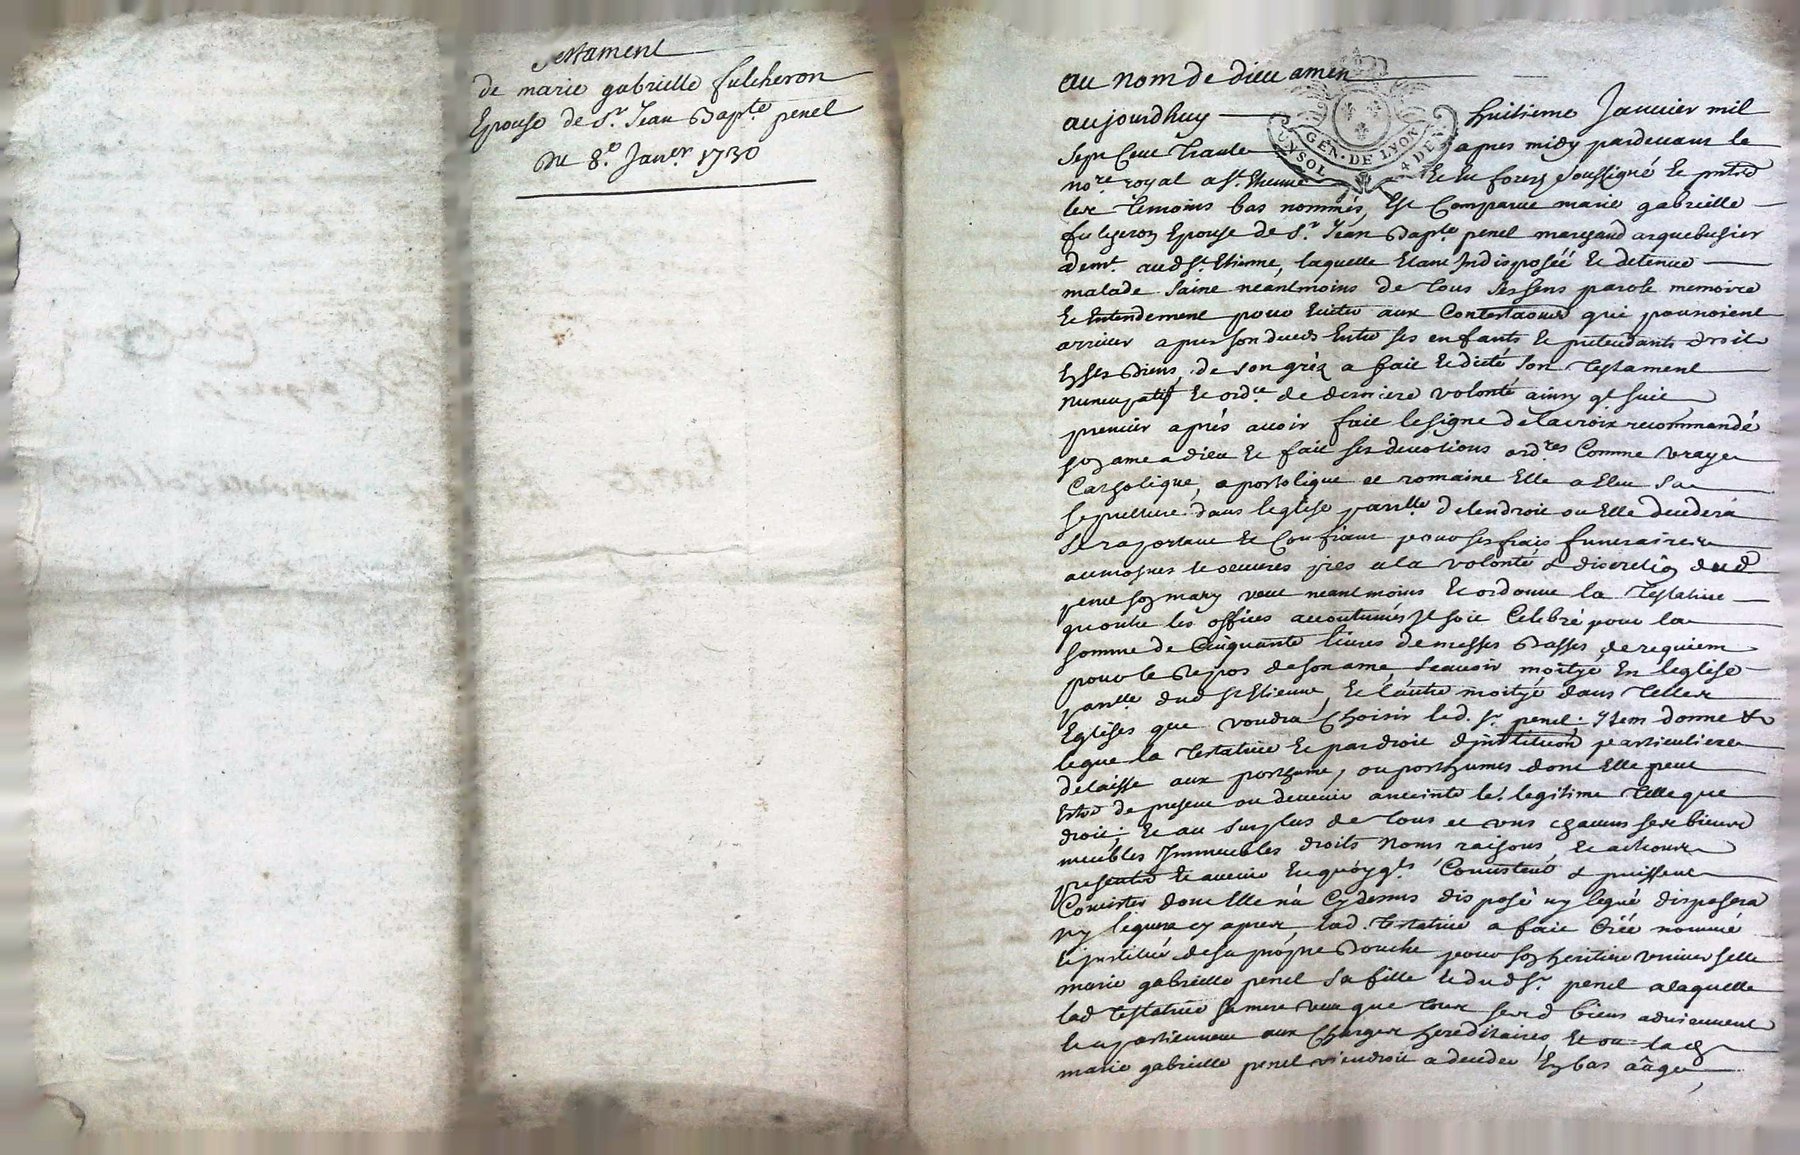 testament
de marie gabrielle fulcheron
Epouse de Sr. Jean Bapte. penel
Du 8e. Janer. 1730
au nom de dieu amen
aujourdhuy huitieme Januier mil
sept Cent trante apres midy pardeuant le
nore. royal a St. Etienne en forez soussigné Et presents
les temoins bas nommés, Est Comparüe marie gabrielle
fulcheron Epouse de Sr. Jean Bapte. penel marchand arquebusier
demt. aud St. Etienne, laquelle Etant Indisposéé Et detenue
malade saine neantmoins de tous ses sens parole memoire
Et Entendement pour Euiter aux Contestaons qui pourroient
arriuer apres son deces Entre ses enfants Et pretendants droit
En ses Biens, de son gréz a fait Et dicté son testament
nuncupatif Et ordce. de derniere volonté ainsy qt suit
premier aprés auoir fait le signe de la croix recommandé
son ame a dieu Et fait ses deuotions ordres Comme vraye
Catholique, apostolique et romaine Elle a Eleu sa
sepulture dans leglise parlle. de lendroit ou Elle decedera
se raportant Et Confiant pour ses frais funeraires
aumosnes Et oeuures pies a la volonté & discretion dud
penel son mary veut neantmoins Et ordonne la testatrice
quoutre les offices accoutumés Il soit Celebré pour la
somme de Cinquante liures de messes Basses de requiem
pour le Repos de son ame, scauoir moitye En leglise
parlle dud St Etienne, Et lautre moitye dans telles
Eglises que voudra Choisir led. Sr. penel. Item donne &
legue la testatrice Et par droit dinstitution particuliere
delaisse aux posthume, ou posthumes dont Elle peut
Estre de present ou deuenir anceinte le. legitime telle que
droit; Et au surplus de tous et vns chacuns ses biens
meubles Immeubles droits noms raisons Et actions
presents Et auenir En quoy qls Concistent & puissent
Concister dont Elle na Cydessus disposé ny legué disposera
ny leguera cy apres, lad. testatrice a fait Créé nommé
Et institué de sa propre Bouche pour son heritiere vniuerselle
marie gabrielle penel sa fille Et dud Sr. penel a laquelle
lad testatrice sa mere veut que tous sesd biens aduiennent
Et apartiennent aux Charges hereditaires, Et ou lad
marie gabrielle penel viendroit a deceder En bas aâge